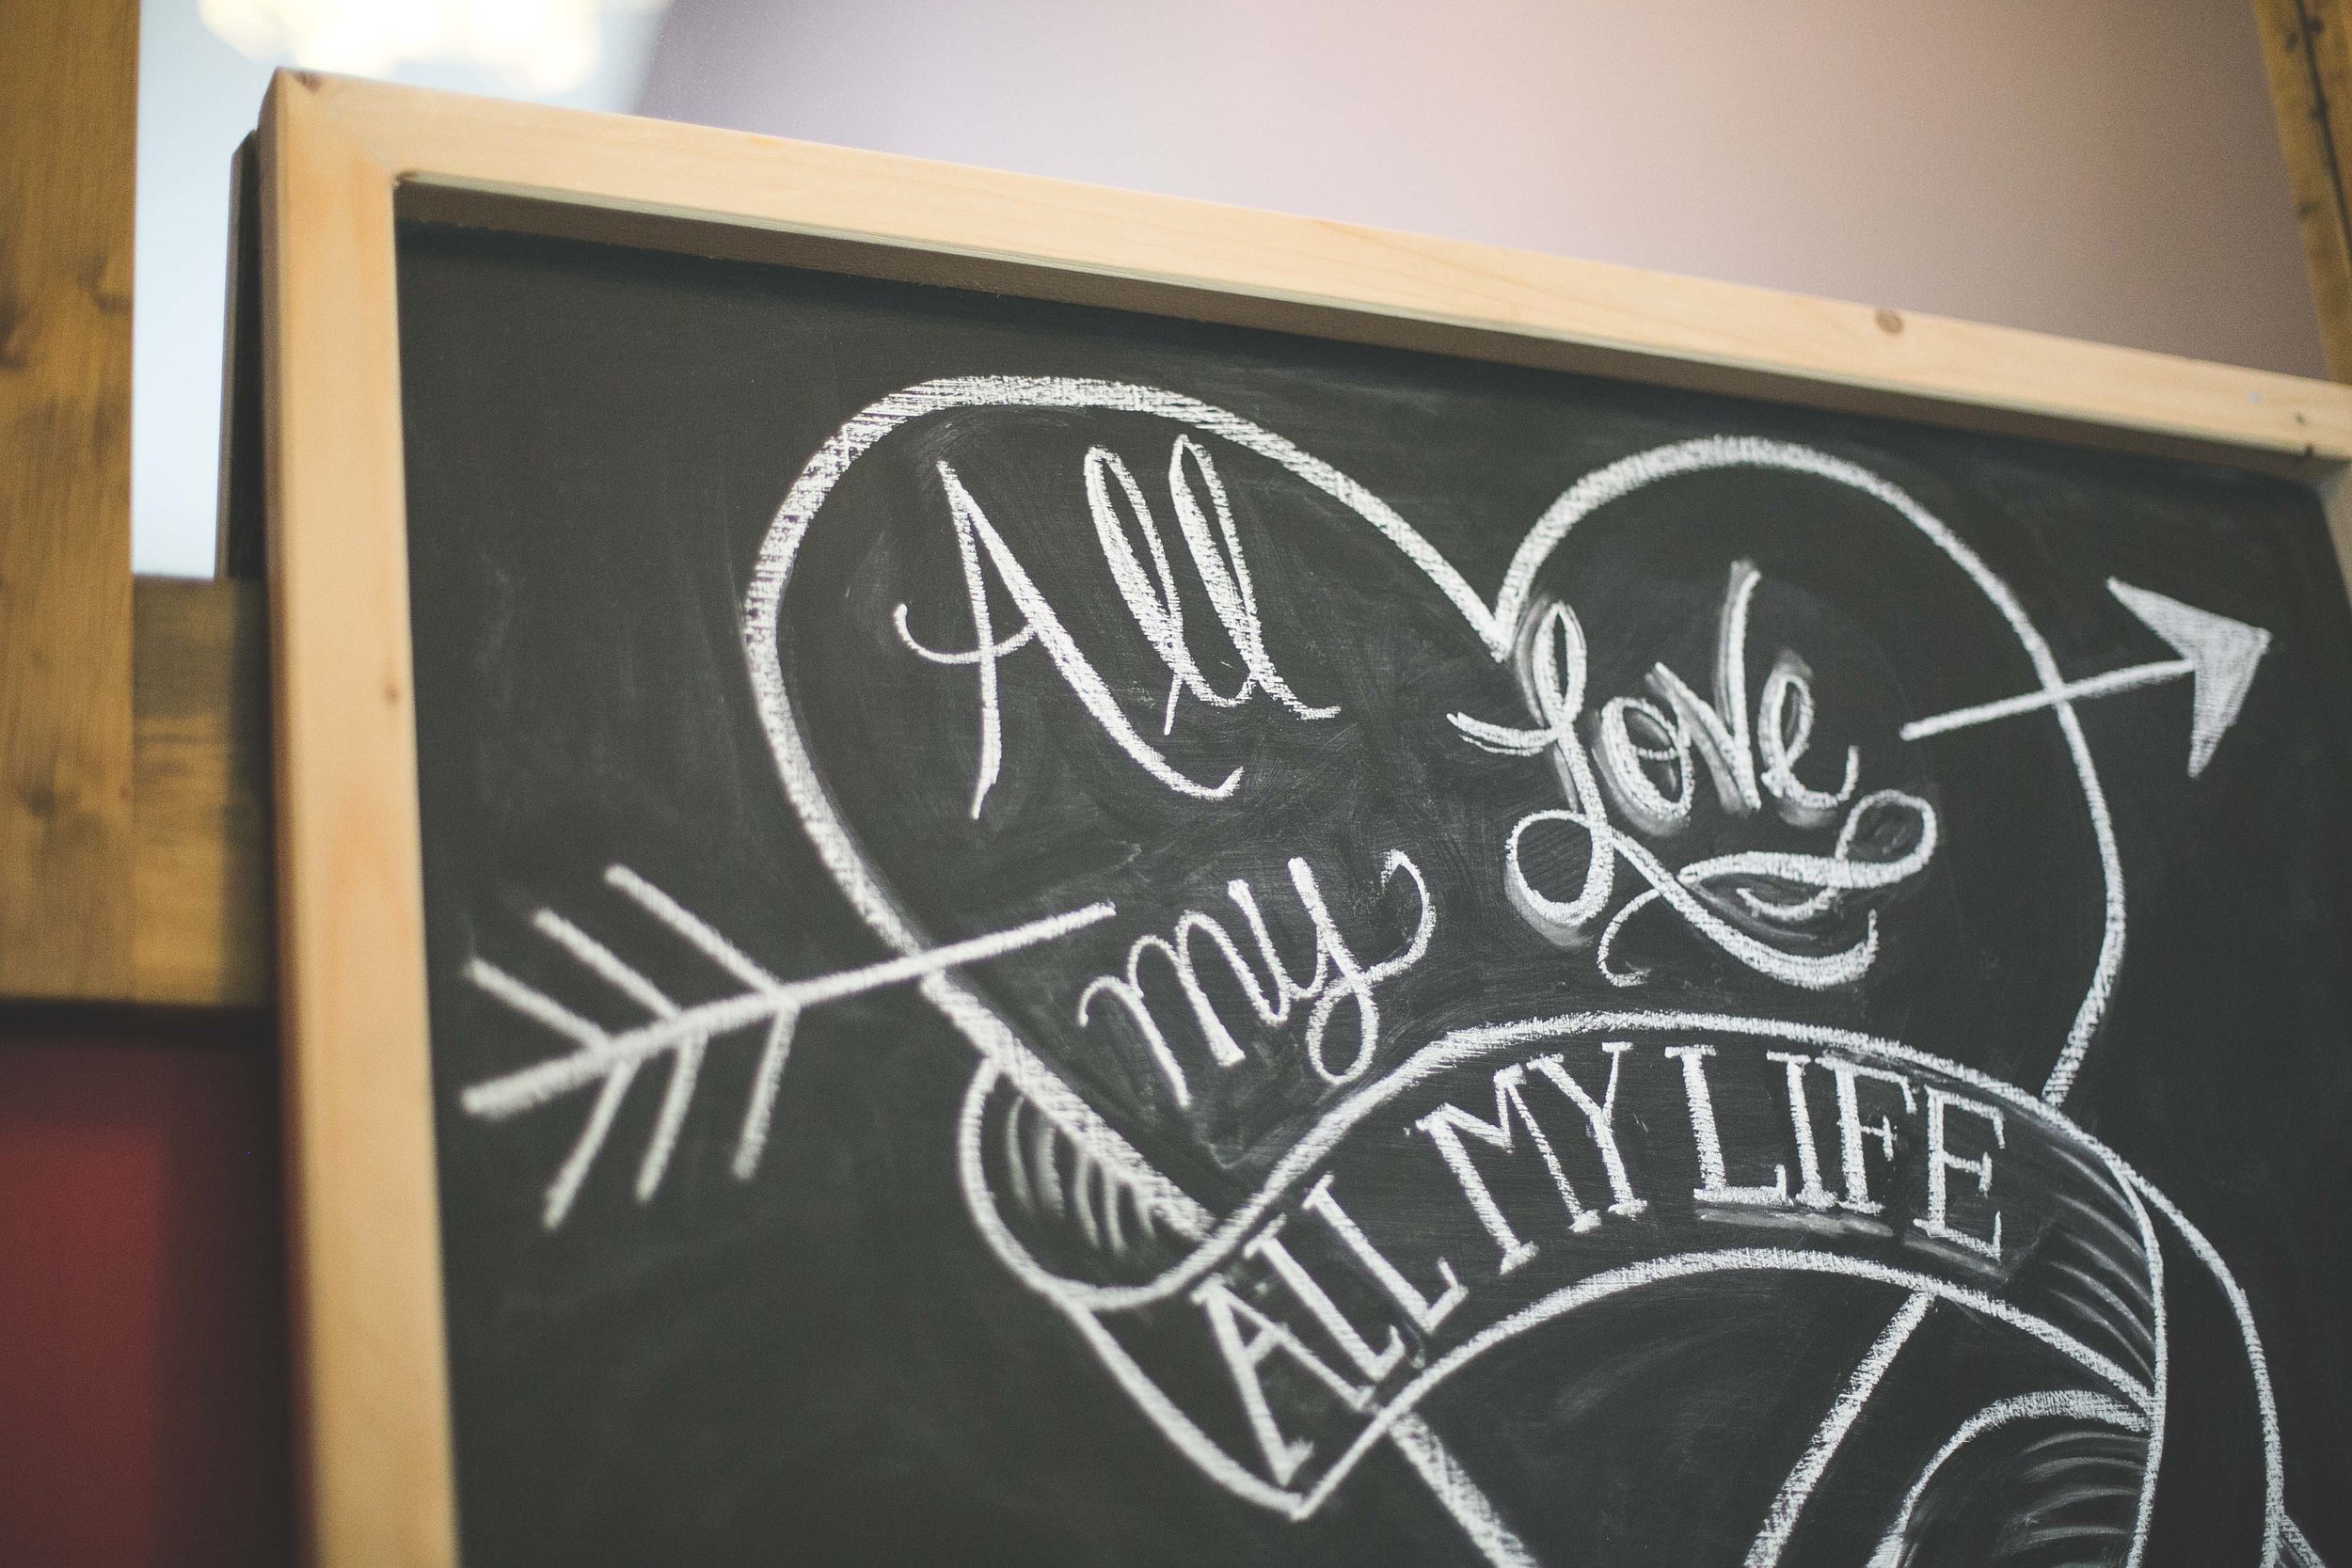 All
my Love
ALL MY LIFE